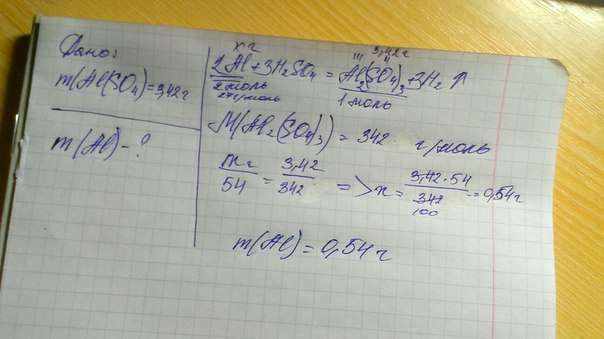 Дано:
m(Al(SO₄)=3,42г
m(Al)-?
x г 3,42г
2Al+3H₂SO₄ = Al₂(SO₄)₃+3H₂↑
2 моль 1 моль
27г/моль
M(Al₂(SO₄)₃) = 342 г/моль
x г/54 = 3,42/342 => x = 3,42·54/342 = 0,54г
100
m(Al)=0,54г